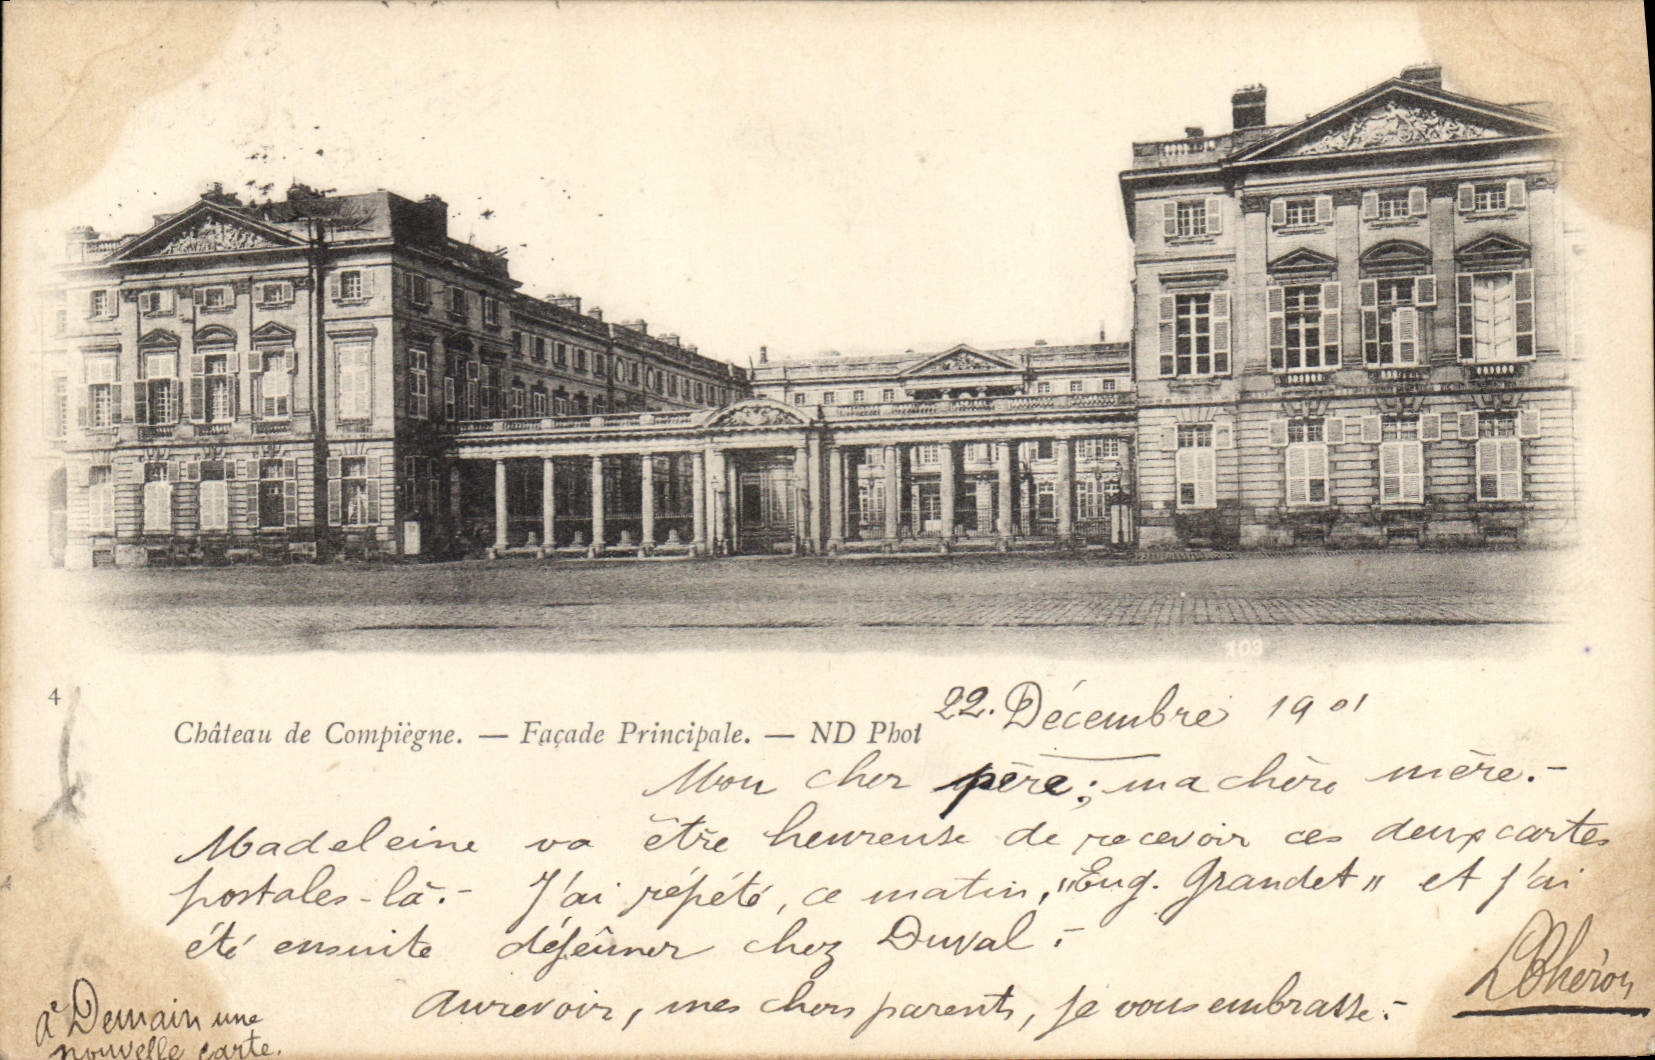 103
4
Château de Compiègne. — Façade Principale. — ND Phot
22. Décembre 1901
Mon cher père; ma chère mère.-
Madeleine va être heureuse de recevoir ces deux cartes
postales-là.- J'ai répété, ce matin, "Eug. Grandet" et j'ai
été ensuite déjeûner chez Duval.-
Aurevoir, mes chers parents, je vous embrasse.-
à Demain une
nouvelle carte.